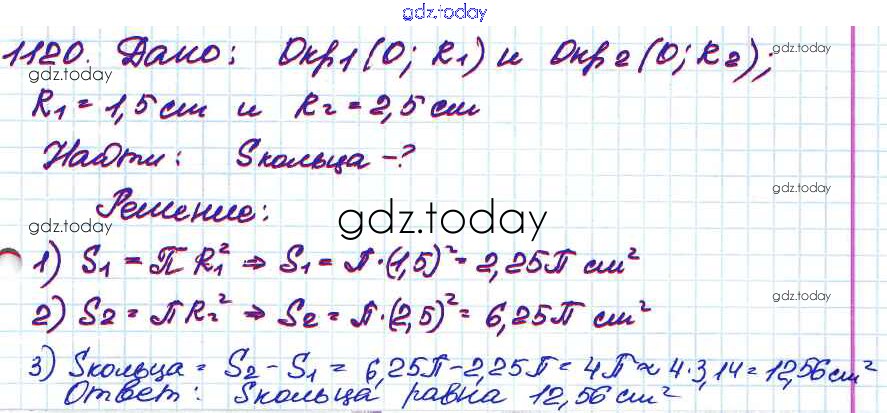 gdz.today
1120. Дано: Окр1(O; R1) и Окр2(O; R2); gdz.today
gdz.today
R1 = 1,5 см и R2 = 2,5 см
Найти: Sкольца -?
gdz.today
Решение:
gdz.today gdz.today
1) S1 = πR1² ⇒ S1 = π·(1,5)² = 2,25π см²
gdz.today
2) S2 = πR2² ⇒ S2 = π·(2,5)² = 6,25π см²
3) Sкольца = S2 - S1 = 6,25π - 2,25π = 4π ≈ 4·3,14 = 12,56 см²
Ответ: Sкольца равна 12,56 см²